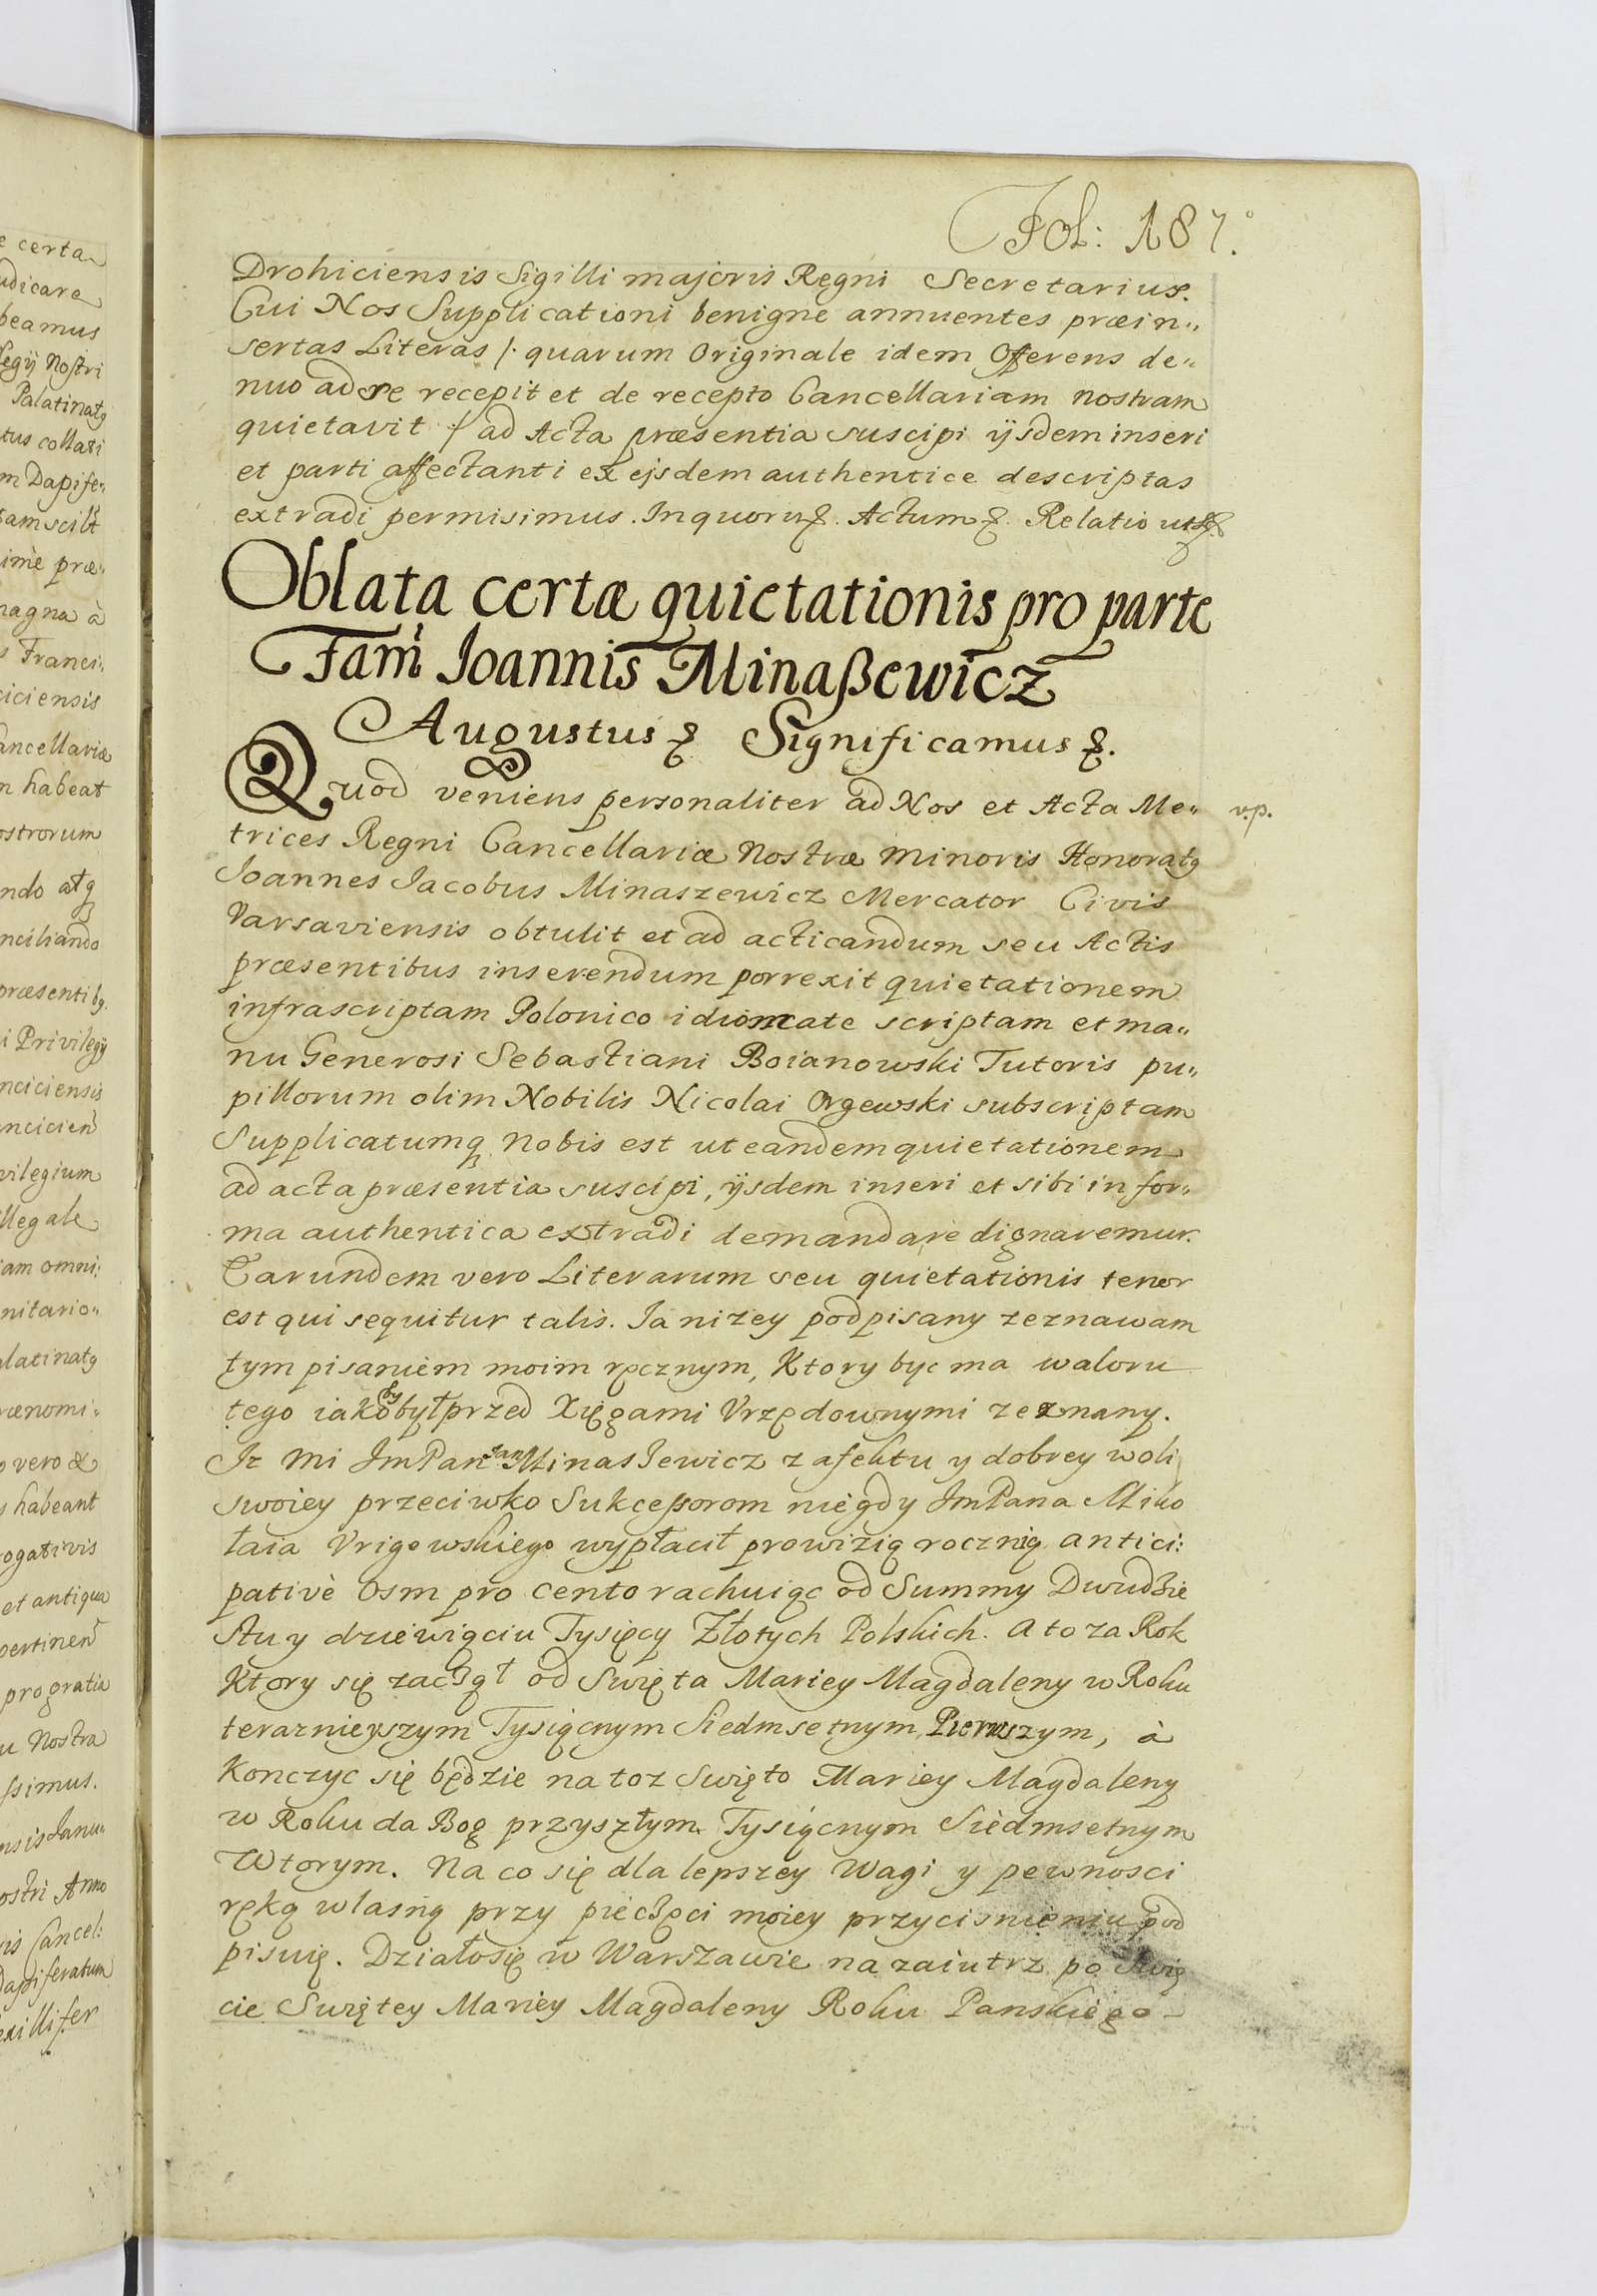 Fol: 187.
Drohiciensis Sigilli majoris Regni Secretarius.
Cui Nos Supplicationi benigne annuentes præin„
sertas Literas /. quarum Originale idem Offerens de„
nuo ad se recepit et de recepto Cancellariam nostram
quietavit ./ ad Acta præsentia suscipi ijsdem inseri
et parti affectanti ex ejsdem authentice descriptas
extradi permisimus. In quoru &. Actum &. Relatio ut s
Oblata certæ quietationis pro parte
Fam̃ Joannis Minaßewicz
Augustus & Significamus &.
Quod veniens personaliter ad Nos et Acta Me„
v.p.
trices Regni Cancellariæ Nostræ Minoris Honoratq
Joannes Jacobus Minaszewicz Mercator Civis
Varsaviensis obtulit et ad acticandum seu Actis
præsentibus inserendum porrexit quietationem
infrascriptam Polonico idiomate scriptam et ma„
nu Generosi Sebastiani Boianowski Tutoris pu„
pillorum olim Nobilis Nicolai Orgewski subscriptam
Supplicatumq nobis est ut eandem quietationem
ad acta præsentia suscipi, ijsdem inseri et sibi in for„
ma authentica extradi demandare dignaremur.
Earundem vero Literarum seu quietationis tenor
est qui sequitur talis. Ja nizey podpisany zeznawam
tym pisaniem moim ręcznym, Ktory byc ma waloru
tego iakoby był przed Xięgami Vrzędownymi zeznany.
Iz mi ImPan Jan Minasiewicz z afektu y dobrey woli
swoiey przeciwko Sukceßorom niegdy ImPana Miko
łaia Vrigowskiego wypłacił prowizią rocznią antici:
pativè osm pro cento rachuiąc od Summy Dwudzie
stu y dziewiąciu Tysięcy Złotych Polskich. A to za Rok
Ktory się zaczął od Swięta Mariey Magdaleny w Roku
teraznieyszym Tysiącnym Siedmsetnym Pierwszym, à
Konczyc się będzie na toz Swięto Mariey Magdaleny
w Roku da Bog przyszłym Tysiącnym Siedmsetnym
Wtorym. Na co się dla lepszey Wagi y pewnosci
ręką własną przy pieczęci moiey przycisnieniu pod
pisuię. Działo się w Warszawie nazaiutrz po Swię
cie Swiętey Mariey Magdaleny Roku Panskiego
e certa
udicare
beamus
legij Nostri
Palatinatq
tus collati
m Dapife„
ime præ„
magna à
s Franci„
ciciensis
ancellariæ
n habeat
ostrorum
ndo atq
nciliando
præsentibq
i Privilegij
nciciensis
vilegium
llegale
iam omni:
nitario„
alatinatq
rænomi„
o vero &
s habeant
rogativis
et antiqua
pro gratia
u Nostra
ssimus.
nsis Janu„
ostri Anno
ris Cancel:
Dapiferatum
exillifer